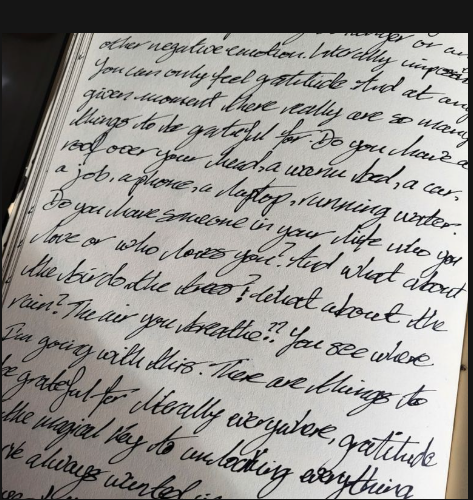 anger or an
other negative emotion. Literally impossi
You can only feel gratitude. And at any
given moment there really are so many
things to be grateful for. Do you have a
roof over your head, a warm bed, a car,
a job, a phone, a laptop, running water.
Do you have someone in your life who you
love or who loves you? And what about
the birds, the trees? What about the
rain? The air you breathe?? You see where
I'm going with this. There are things to
be grateful for literally everywhere, gratitude
the magical key to unlocking everything
've always wanted